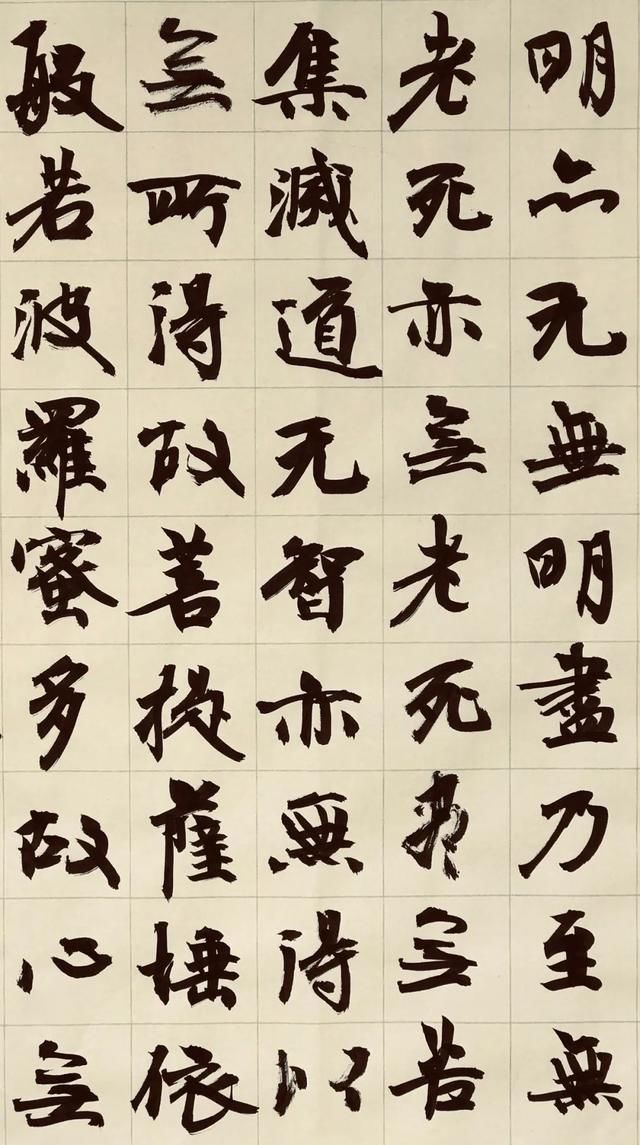 明亦无無明盡乃至無
老死亦無老死尽無苦
集滅道无智亦無得以
無所得故菩提薩埵依
般若波羅蜜多故心無